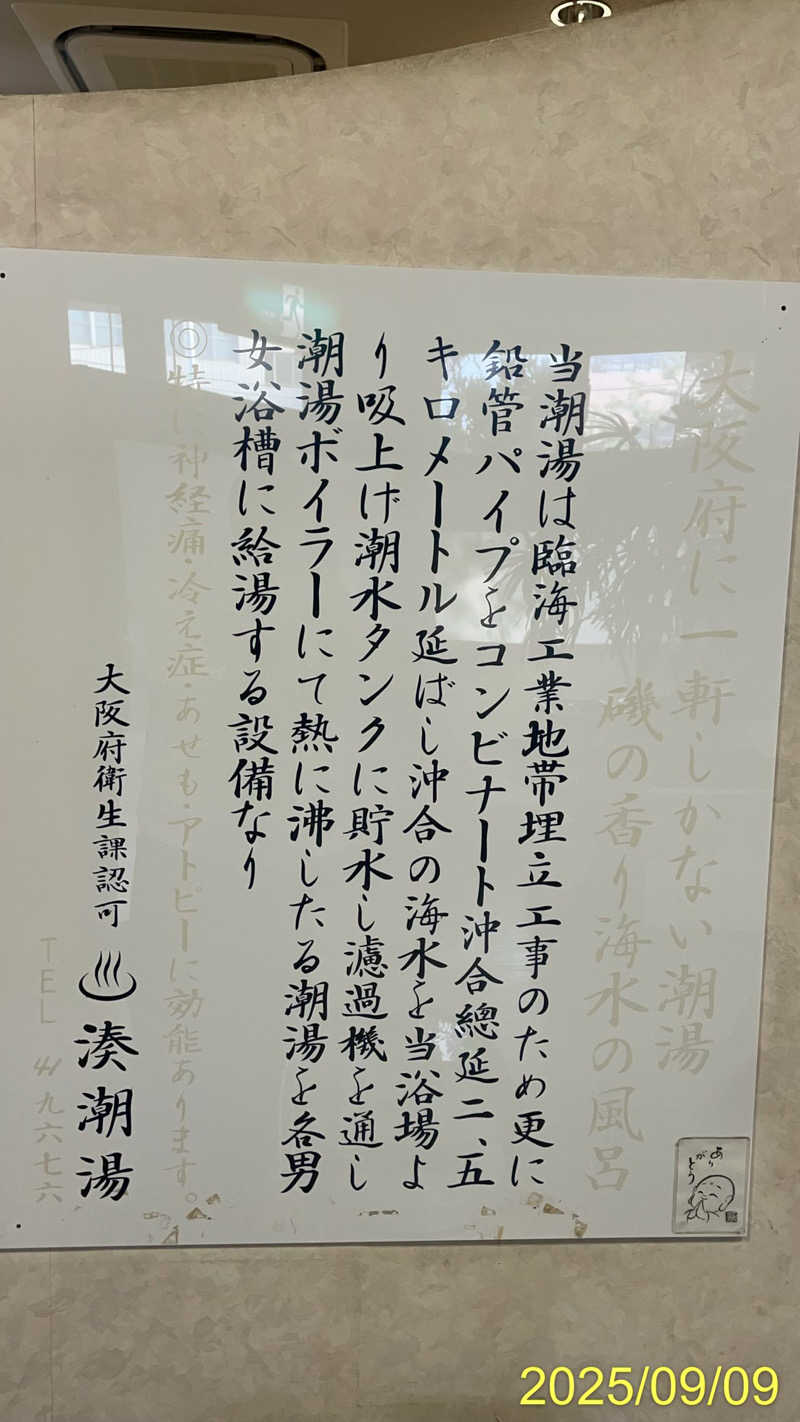 大阪府に一軒しかない潮湯
磯の香り海水の風呂
当潮湯は臨海工業地帯埋立工事のため更に
鉛管パイプをコンビナート沖合總延二、五
キロメートル延ばし沖合の海水を当浴場よ
り吸上げ潮水タンクに貯水し濾過機を通し
潮湯ボイラーにて熱に沸したる潮湯を各男
女浴槽に給湯する設備なり
◎特に神経痛・冷え症・あせも・アトピーに効能あります。
大阪府衛生課認可
♨湊潮湯
TEL 41九六七六
ありがとう
2025/09/09